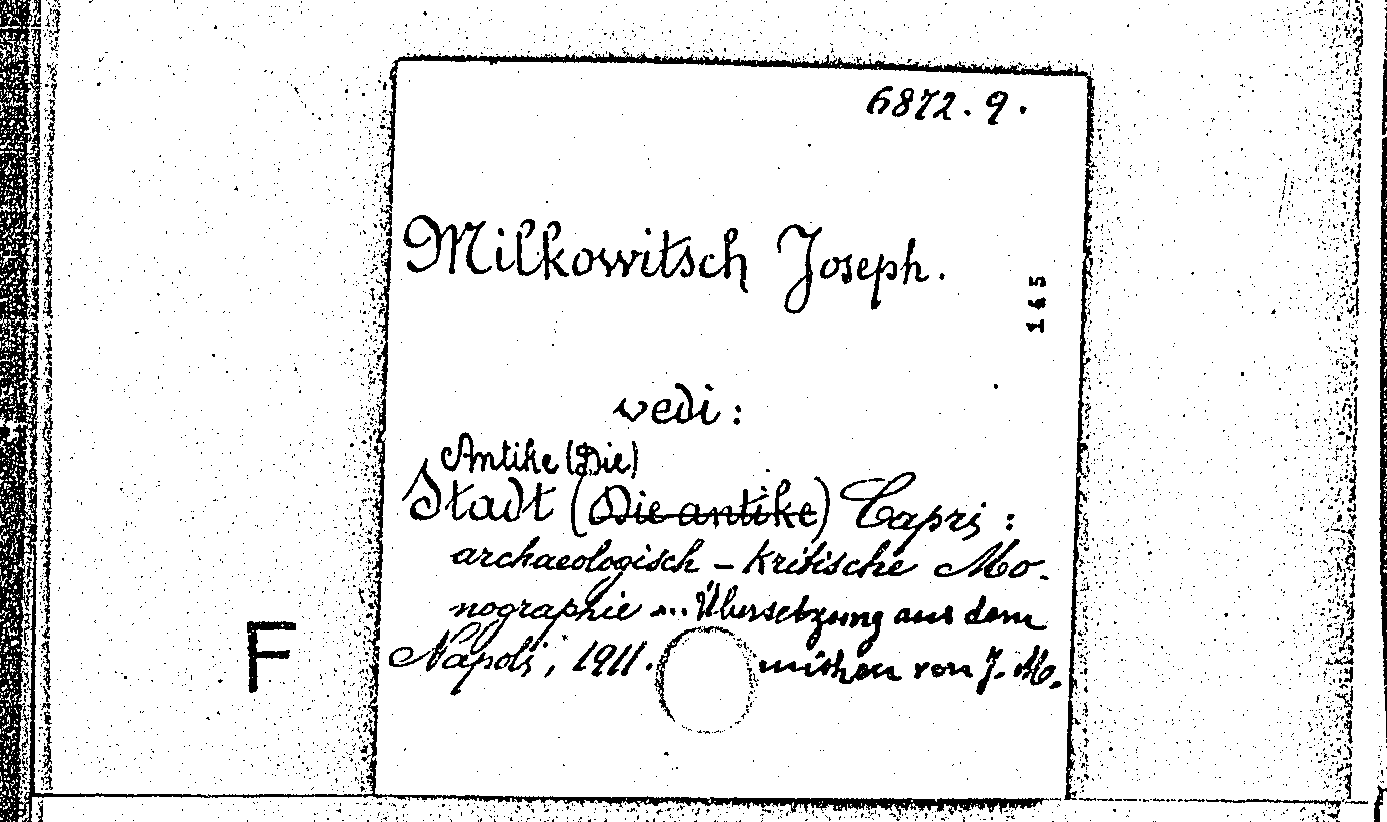 6872.9.
Milkowitsch Joseph.
165
vedi:
Antike (Die)
Stadt (Die antike) Capri:
archaeologisch - kritische Mo-
nographie ... Übersetzung aus dem
Napoli, 1911. von J. M.
F